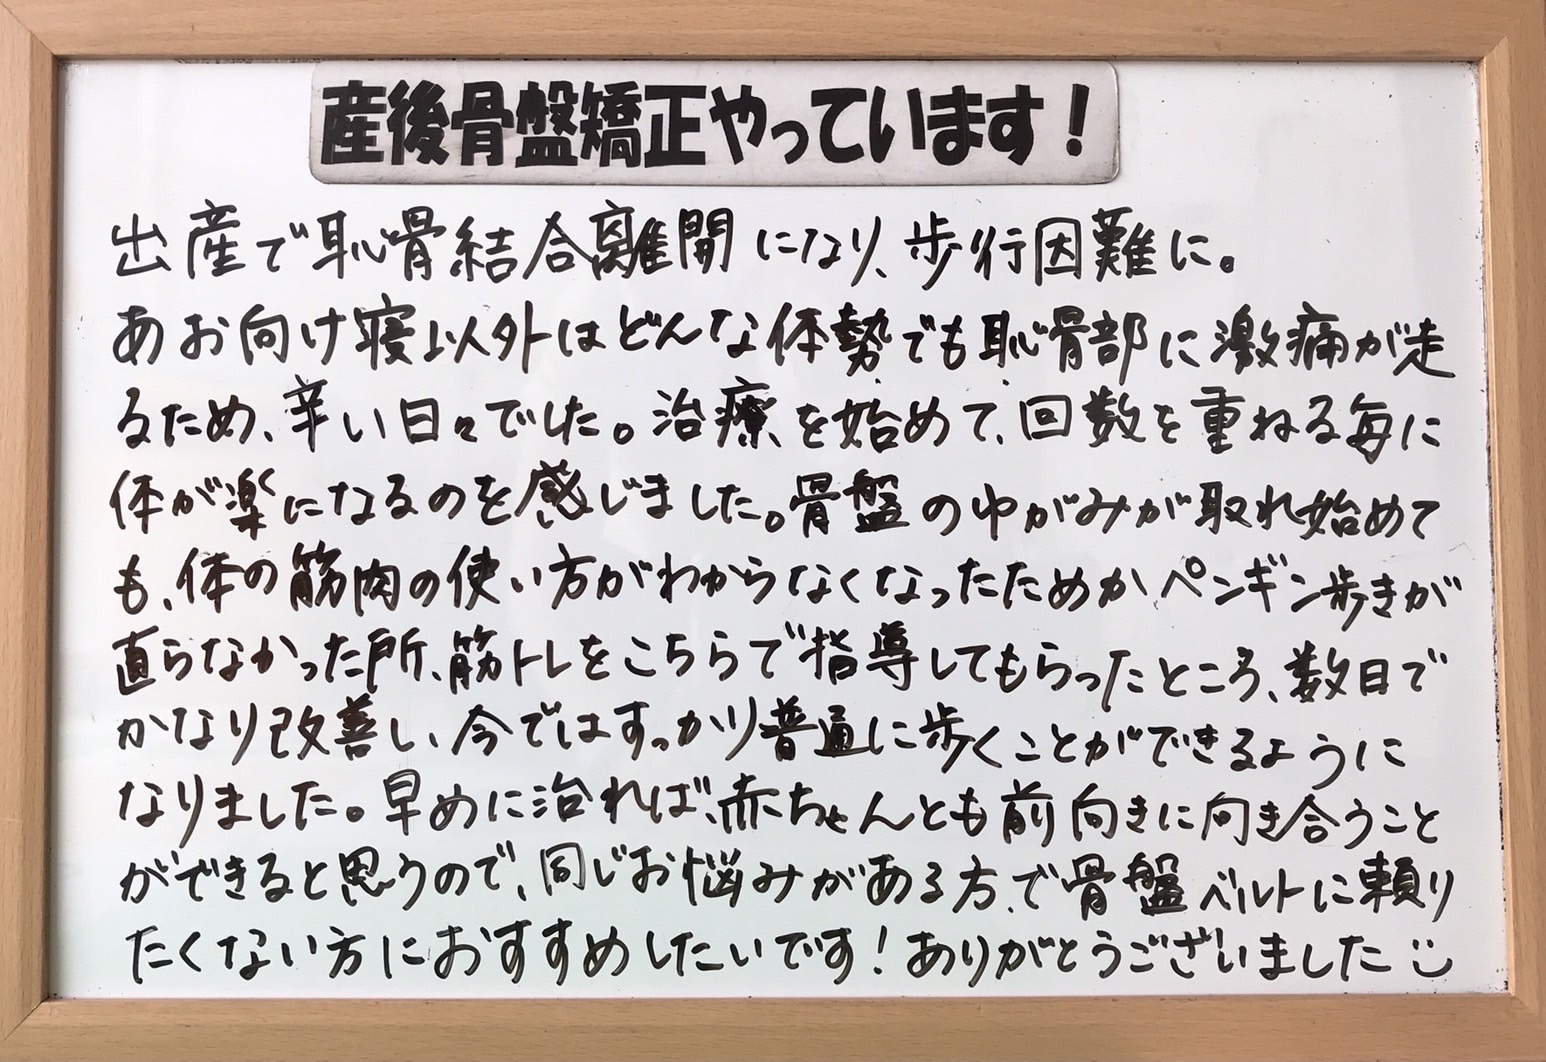 産後骨盤矯正やっています！
出産で恥骨結合離開になり、歩行困難に。
あお向け寝以外はどんな体勢でも恥骨部に激痛が走
るため、辛い日々でした。治療を始めて、回数を重ねる毎に
体が楽になるのを感じました。骨盤のゆがみが取れ始めて
も、体の筋肉の使い方がわからなくなったためかペンギン歩きが
直らなかった所、筋トレをこちらで指導してもらったところ、数日で
かなり改善し、今ではすっかり普通に歩くことができるように
なりました。早めに治れば、赤ちゃんとも前向きに向き合うこと
ができると思うので、同じお悩みがある方、で骨盤ベルトに頼り
たくない方におすすめしたいです！ありがとうございました